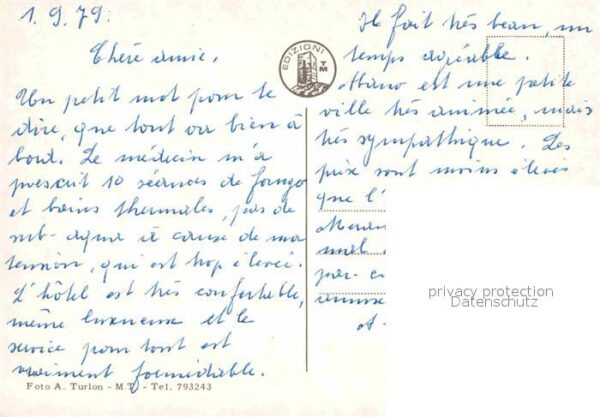 1.9.79.
Chère amie,
Un petit mot pour te
dire, que tout va bien à
bord. Le médecin m'a
prescrit 10 séances de fango
et bains thermales, pas de
sub-aqua à cause de ma
tension, qui est trop élevée.
L'hôtel est très confortable,
même luxueux et le
service pour tout est
vraiment formidable.
Foto A. Turlon - M.T. - Tel. 793243
EDIZIONI
TM
Il fait très beau, un
temps agréable.
Abano est une petite
ville très animée, mais
très sympathique. Les
prix sont moins élevés
que l'
par
privacy protection
Datenschutz